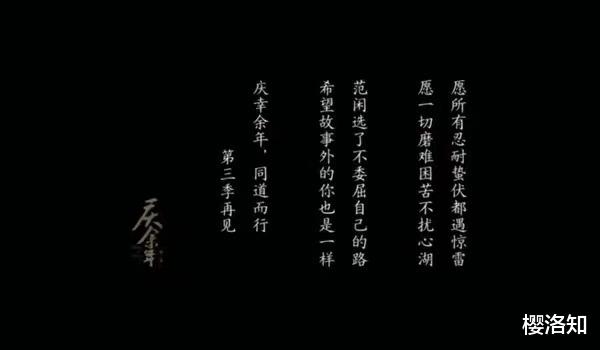 愿所有忍耐蛰伏都遇惊雷
愿一切磨难困苦不扰心湖
范闲选了不委屈自己的路
希望故事外的你也是一样
庆幸余年，同道而行
第三季再见
庆余年
樱洛知